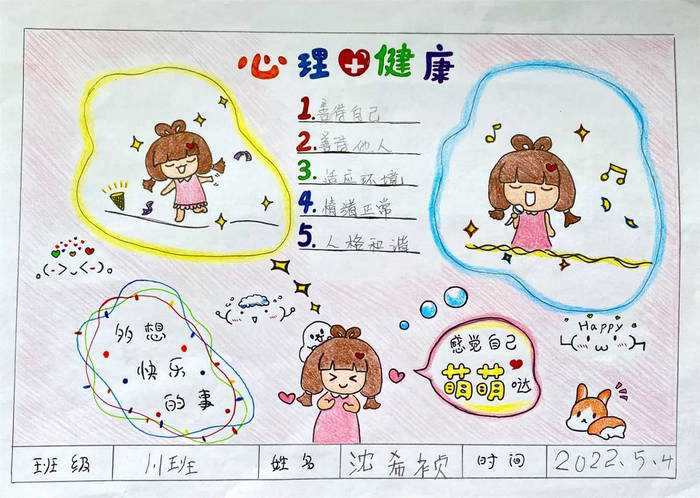 心理健康
1.善待自己
2.善待他人
3.适应环境
4.情绪正常
5.人格和谐
多想
快乐
的事
感觉自己
萌萌哒
Happy
班级 川班 姓名 沈希 时间 2022.5.4